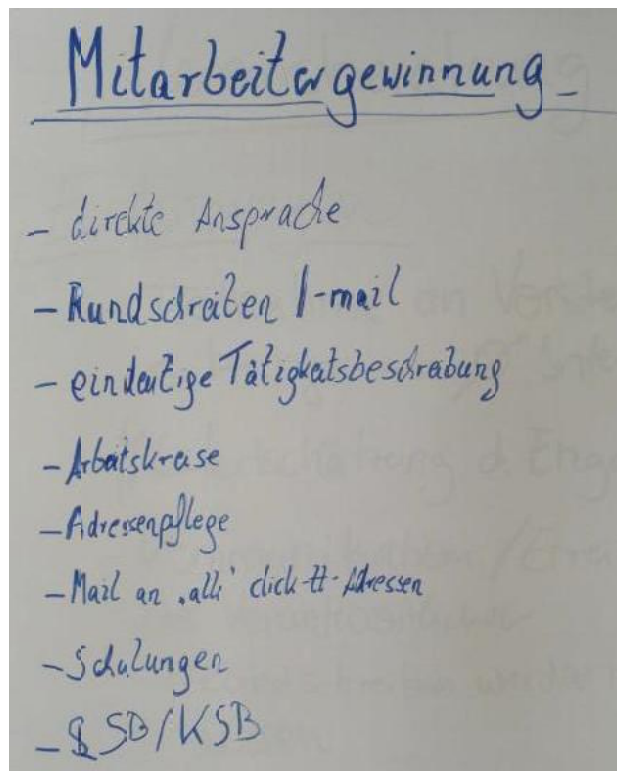 Mitarbeitergewinnung
- direkte Ansprache
- Rundschreiben /-mail
- eindeutige Tätigkeitsbeschreibung
- Arbeitskreise
- Adressenpflege
- Mail an "alle" click-tt-Adressen
- Schulungen
- LSB/KSB